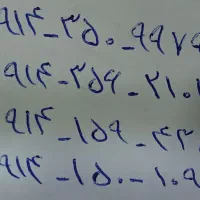 ۹۱۴-۳۵۰-۹۹۷۹
۹۱۴-۳۵۹-۲۱۰۱
۹۱۴-۱۵۹-۴۳
۹۱۴-۱۵۰-۱۰۹